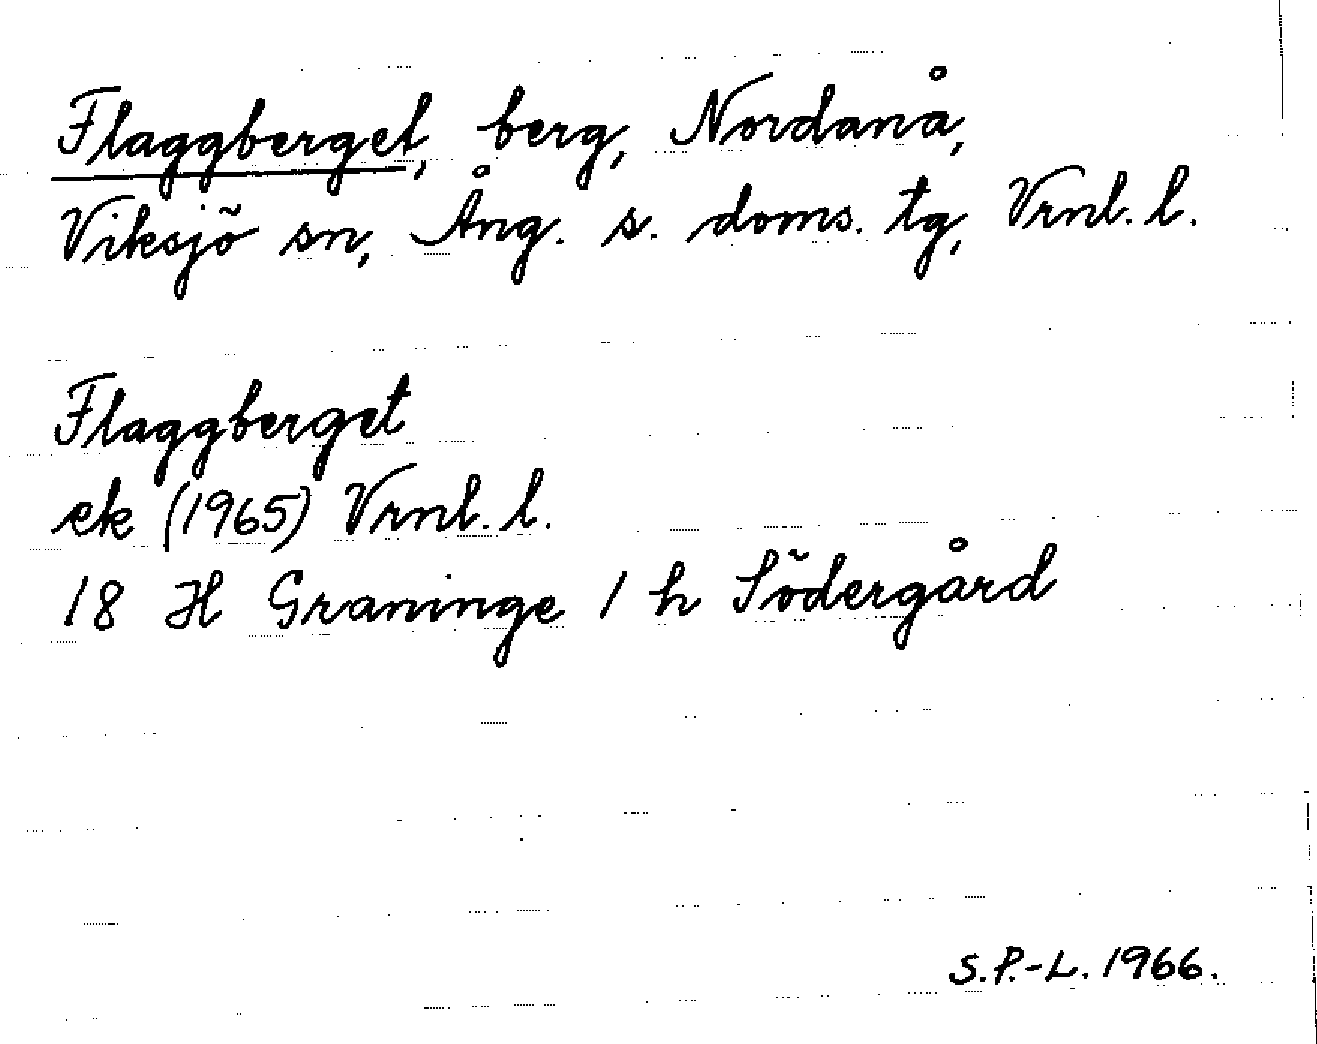 Flaggberget, berg, Nordanå,
Viksjö sn, Ång. s. doms. tg, Vrnl. l.
Flaggberget
ek (1965) Vrnl. l.
18 H Graninge 1 h Södergård
S.P.-L. 1966.